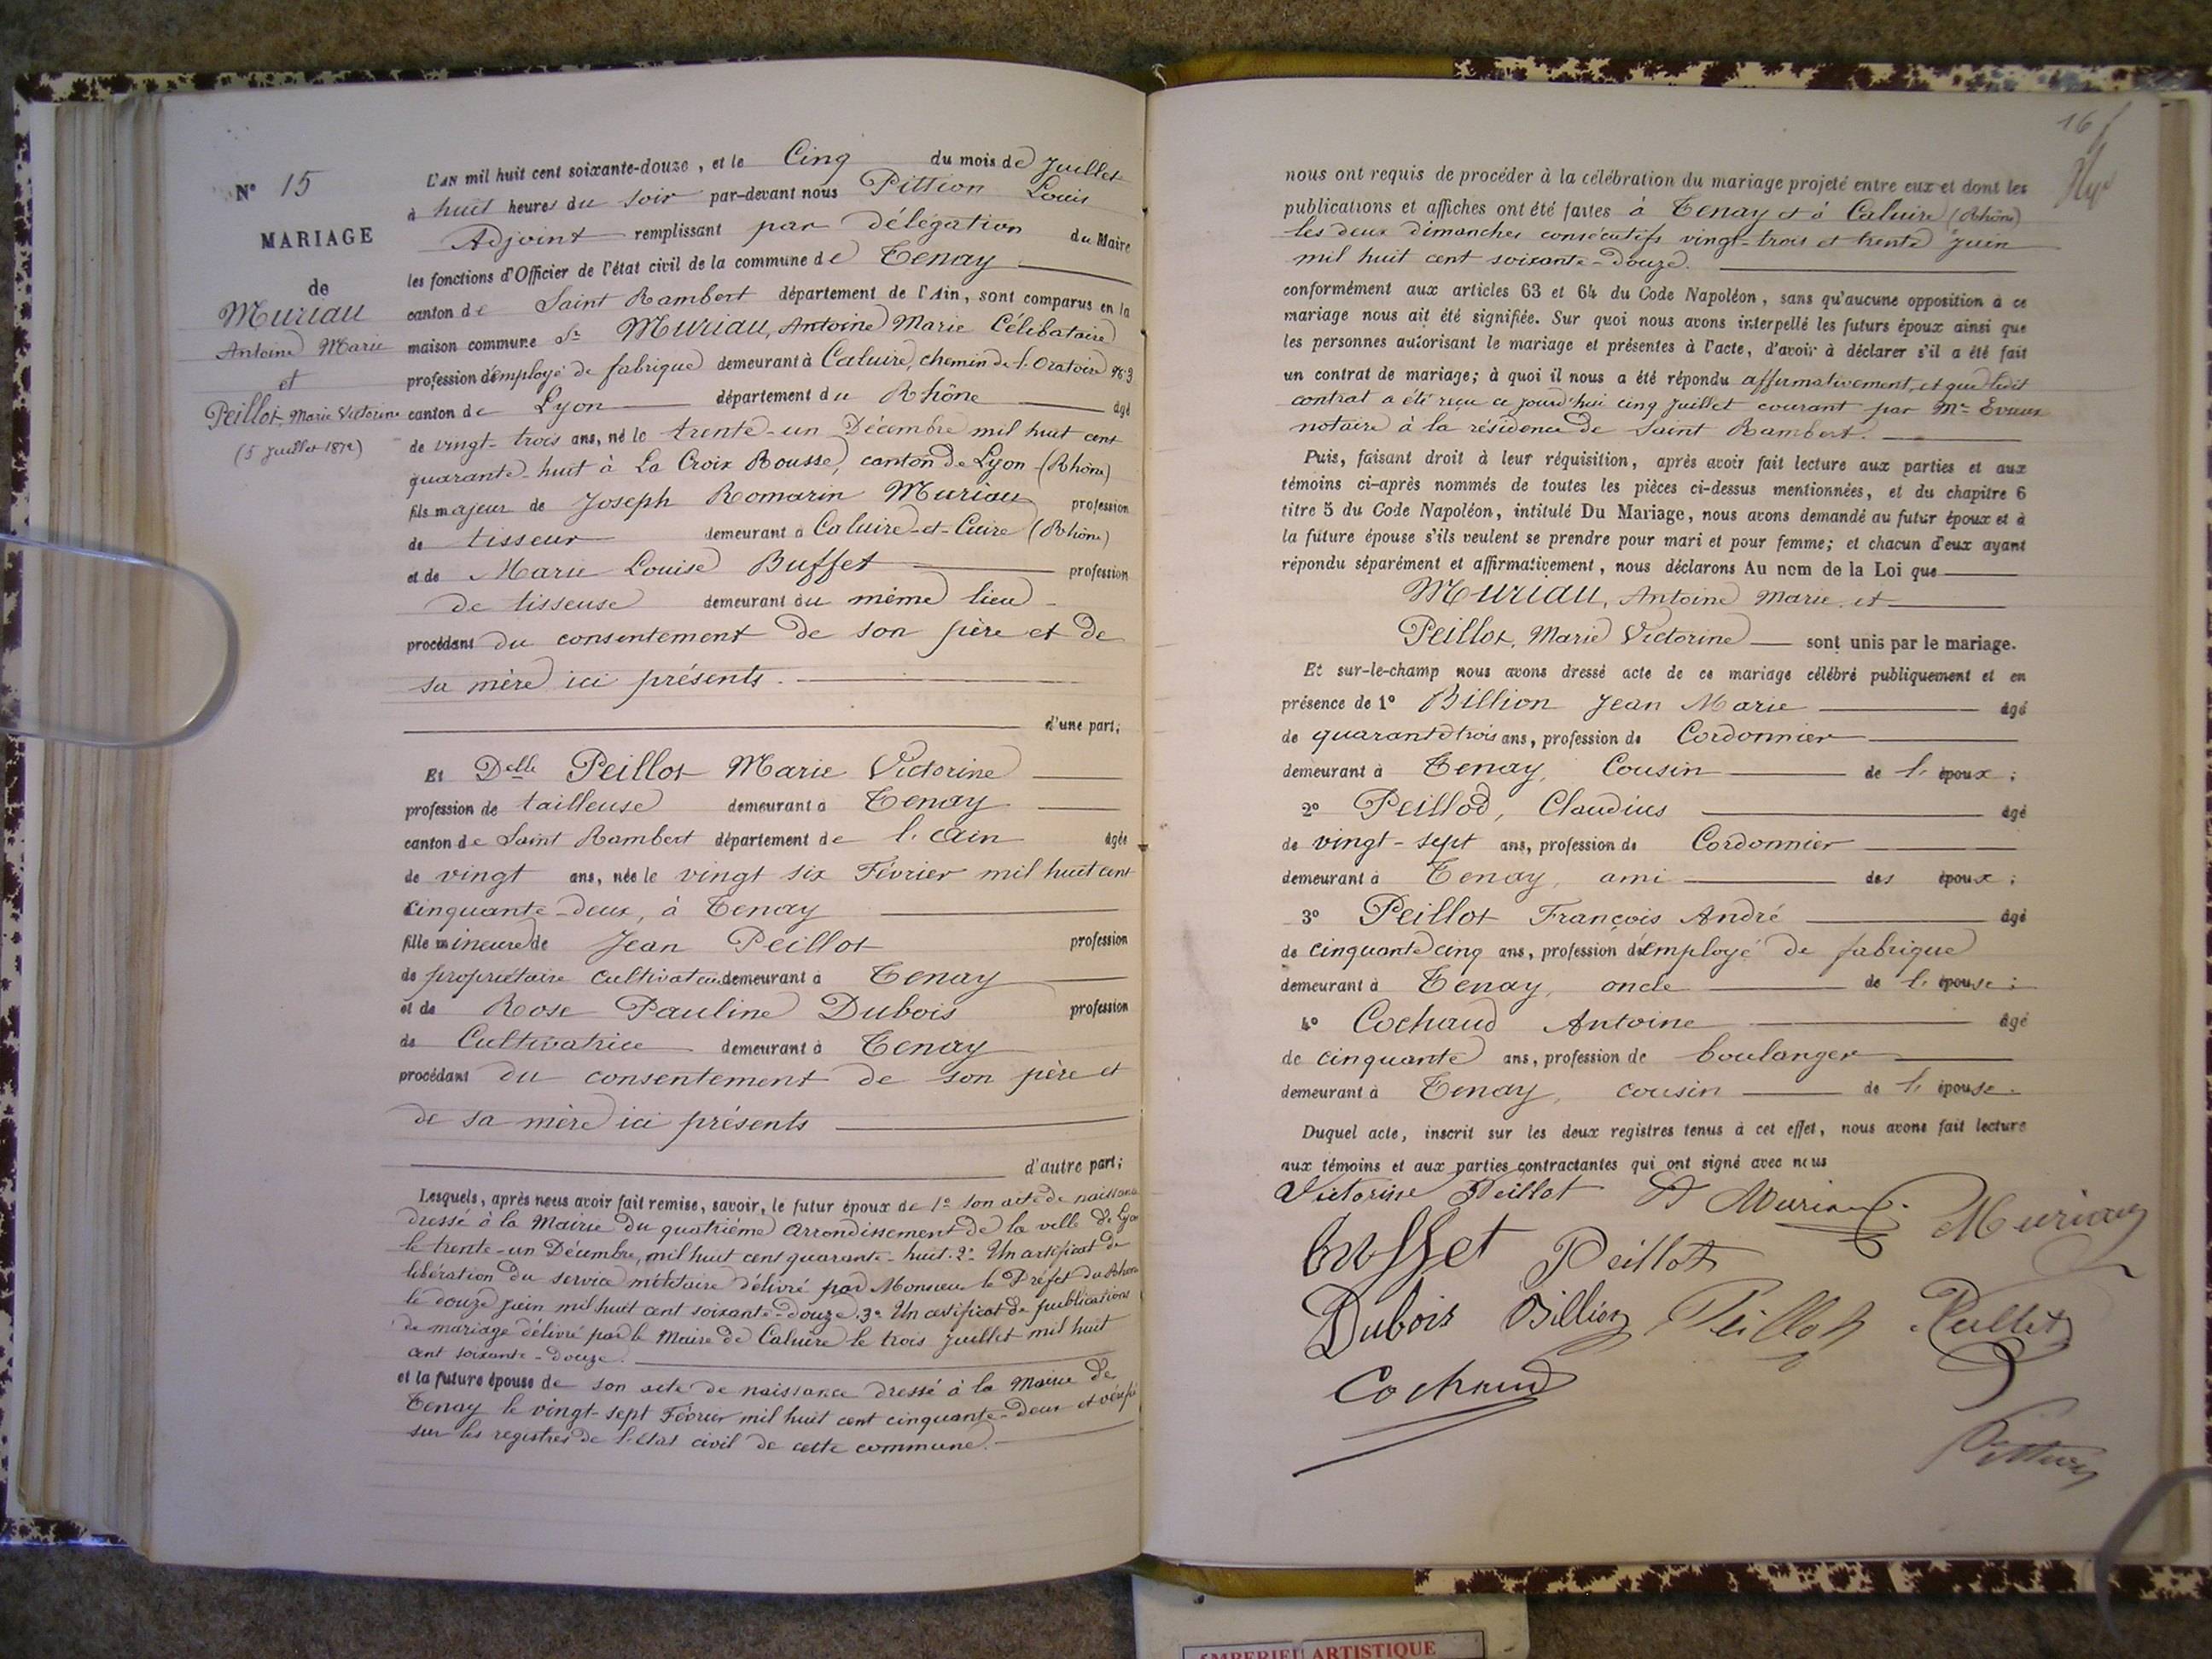 N° 15
MARIAGE
de
Muriau
Antoine Marie
et
Peillot, Marie Victorine
(5 Juillet 1872)
L'AN mil huit cent soixante-douze, et le Cinq du mois de Juillet
à huit heures du soir par-devant nous Pittion Louis
Adjoint remplissant par délégation du Maire
les fonctions d'Officier de l'état civil de la commune de Tenay
canton de Saint Rambert département de l'Ain, sont comparus en la
maison commune Sr Muriau, Antoine Marie Célibataire
profession d'employé de fabrique demeurant à Caluire, chemin de l'Oratoire N° 3
canton de Lyon département du Rhône âgé
de vingt-trois ans, né le trente-un Décembre mil huit cent
quarante-huit à La Croix Rousse, canton de Lyon (Rhône)
fils majeur de Joseph Romarin Muriau profession
de tisseur demeurant à Caluire-et-Cuire (Rhône)
et de Marie Louise Buffet profession
de tisseuse demeurant au même lieu
procédant du consentement de son père et de
sa mère ici présents.
d'une part;
Et Delle Peillot Marie Victorine
profession de tailleuse demeurant à Tenay
canton de Saint Rambert département de l'Ain âgée
de vingt ans, née le vingt six Février mil huit cent
cinquante-deux, à Tenay
fille mineure de Jean Peillot profession
de propriétaire cultivateur demeurant à Tenay
et de Rose Pauline Dubois profession
de Cultivatrice demeurant à Tenay
procédant du consentement de son père et
de sa mère ici présents
d'autre part;
Lesquels, après nous avoir fait remise, savoir, le futur époux de 1° son acte de naissance
dressé à la Mairie du quatrième arrondissement de la ville de Lyon
le trente-un Décembre, mil huit cent quarante-huit. 2° Un certificat de
libération du service militaire délivré par Monsieur le Préfet du Rhône
le douze juin mil huit cent soixante-douze. 3° Un certificat de publications
de mariage délivré par le Maire de Caluire le trois juillet mil huit
cent soixante-douze.
et la future épouse de son acte de naissance dressé à la Mairie de
Tenay le vingt-sept Février mil huit cent cinquante-deux et vérifié
sur les registres de l'état civil de cette commune.
16
nous ont requis de procéder à la célébration du mariage projeté entre eux et dont les
publications et affiches ont été faites à Tenay et à Caluire (Rhône)
les deux dimanches consécutifs vingt-trois et trente Juin
mil huit cent soixante-douze.
conformément aux articles 63 et 64 du Code Napoléon, sans qu'aucune opposition à ce
mariage nous ait été signifiée. Sur quoi nous avons interpellé les futurs époux ainsi que
les personnes autorisant le mariage et présentes à l'acte, d'avoir à déclarer s'il a été fait
un contrat de mariage; à quoi il nous a été répondu affirmativement, et que ledit
contrat a été reçu ce jourd'hui cinq Juillet courant par Me
notaire à la résidence de Saint Rambert.
Puis, faisant droit à leur réquisition, après avoir fait lecture aux parties et aux
témoins ci-après nommés de toutes les pièces ci-dessus mentionnées, et du chapitre 6
titre 5 du Code Napoléon, intitulé Du Mariage, nous avons demandé au futur époux et à
la future épouse s'ils veulent se prendre pour mari et pour femme; et chacun d'eux ayant
répondu séparément et affirmativement, nous déclarons Au nom de la Loi que
Muriau, Antoine Marie, et
Peillot, Marie Victorine sont unis par le mariage.
Et sur-le-champ nous avons dressé acte de ce mariage célébré publiquement et en
présence de 1° Billion Jean Marie âgé
de quarante trois ans, profession de Cordonnier
demeurant à Tenay, Cousin de l'époux;
2° Peillod, Claudius âgé
de vingt-sept ans, profession de Cordonnier
demeurant à Tenay, ami des époux;
3° Peillot François André âgé
de cinquante cinq ans, profession d'employé de fabrique
demeurant à Tenay, oncle de l'épouse;
4° Cochaud Antoine âgé
de cinquante ans, profession de boulanger
demeurant à Tenay, cousin de l'épouse.
Duquel acte, inscrit sur les deux registres tenus à cet effet, nous avons fait lecture
aux témoins et aux parties contractantes qui ont signé avec nous
Victorine Peillot A Muriau Muriau
buffet Peillot
Dubois Billion Peillot Peillot
Cochaud
Pittion
ARTISTIQUE